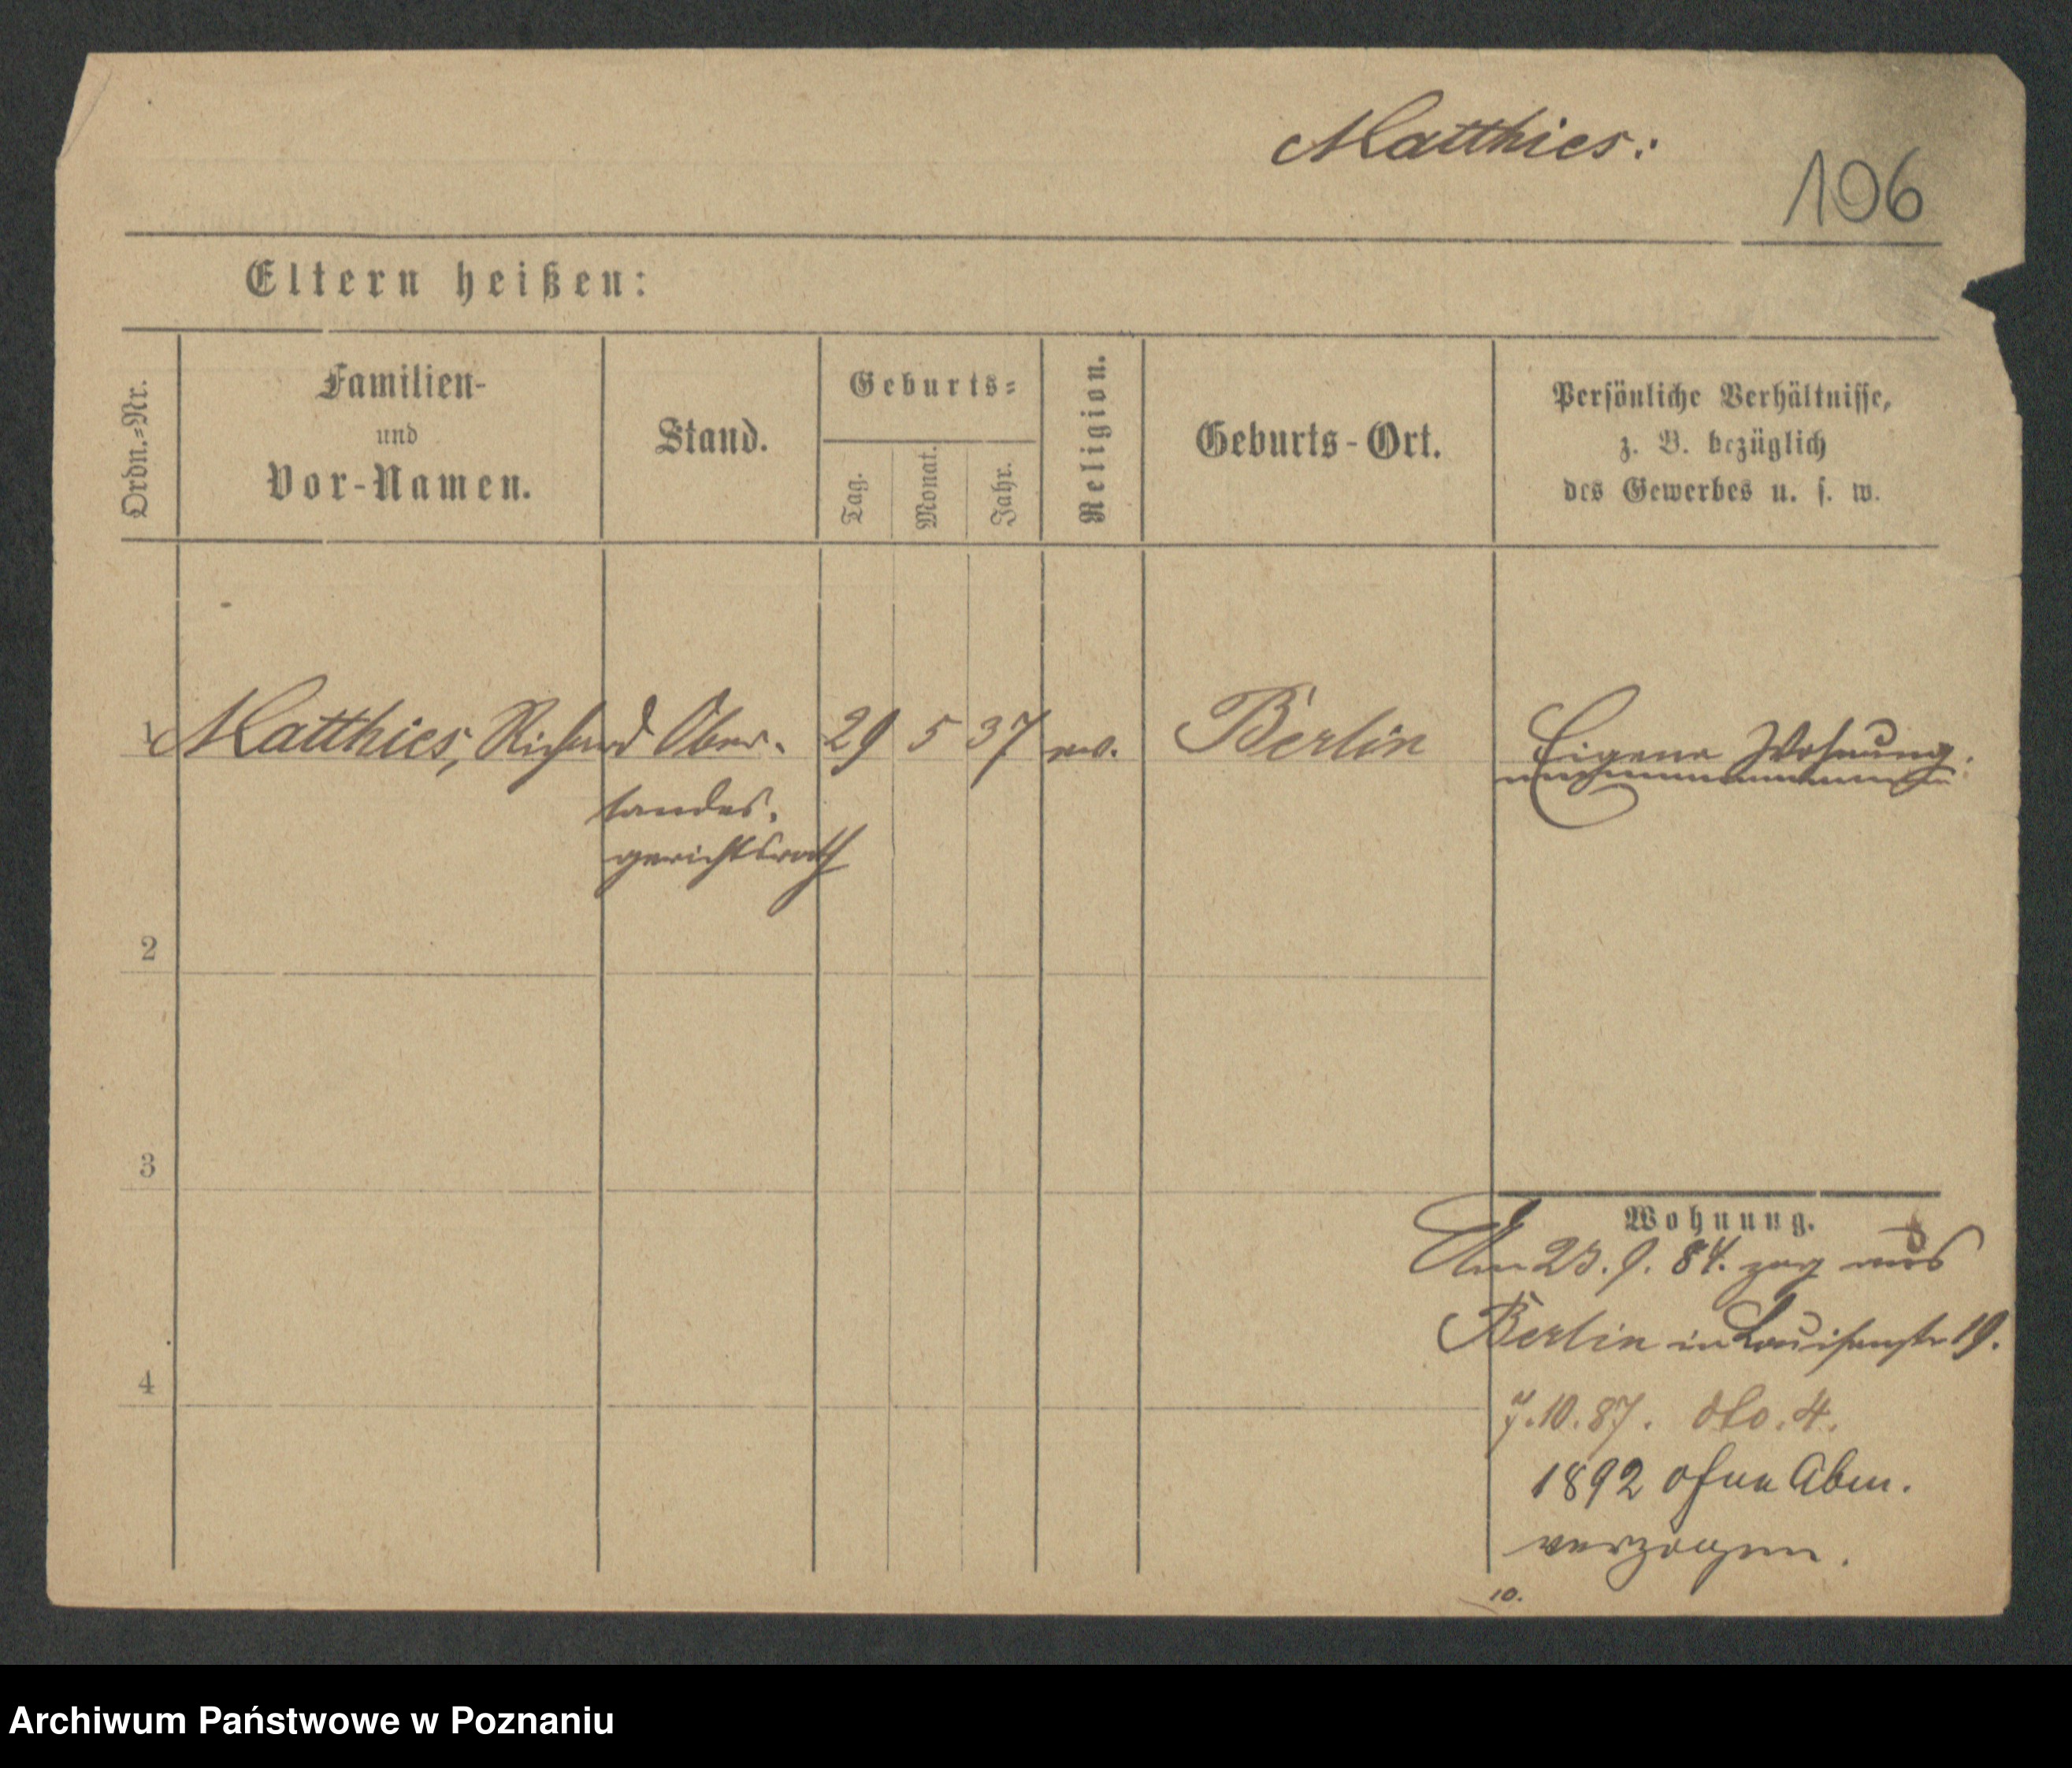 Matthies:
106
Eltern heißen:
Ordn.=Nr.
Familien-
und
Vor-Namen.
Stand.
Geburts=
Tag.
Monat.
Jahr.
Religion.
Geburts-Ort.
Persönliche Verhältnisse,
z. B. bezüglich
des Gewerbes u. s. w.
1 Matthies, Richard Ober- 29 5 37 ev. Berlin Eigene Wohnung.
landes-
gerichtsrath
2
3
Wohnung.
Am 23. 9. 84. zog aus
Berlin in Louisenstr 19.
4
7.10.87. dto. 4.
1892 ohne Abm.
verzogen.
10.
Archiwum Państwowe w Poznaniu